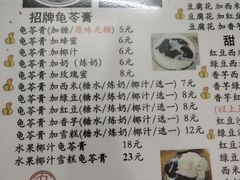 招牌龟苓膏
龟苓膏(加糖/原味无糖) 5元
龟苓膏 加蜂蜜 6元
龟苓膏 加椰汁 6元
龟苓膏 加奶 (炼奶) 6元
龟苓膏 加玫瑰蜜 8元
龟苓膏 加西米(糖水/炼奶/椰汁/选一) 7元
龟苓膏 加绿豆(糖水/炼奶/椰汁/选一) 8元
龟苓膏 加红豆(糖水/炼奶/椰汁/选一) 8元
龟苓膏 加香芋(糖水/炼奶/椰汁/选一) 8元
龟苓膏 加雪糕(糖水/炼奶/椰汁/选一) 12元
水果椰汁龟苓膏 18元
水果椰汁雪糕龟苓膏 23元
豆腐花 加
豆腐花 加西米
豆腐花 加香芋
甜
绿豆西米
红豆西米
香芋西米
绿豆
红豆
香芋